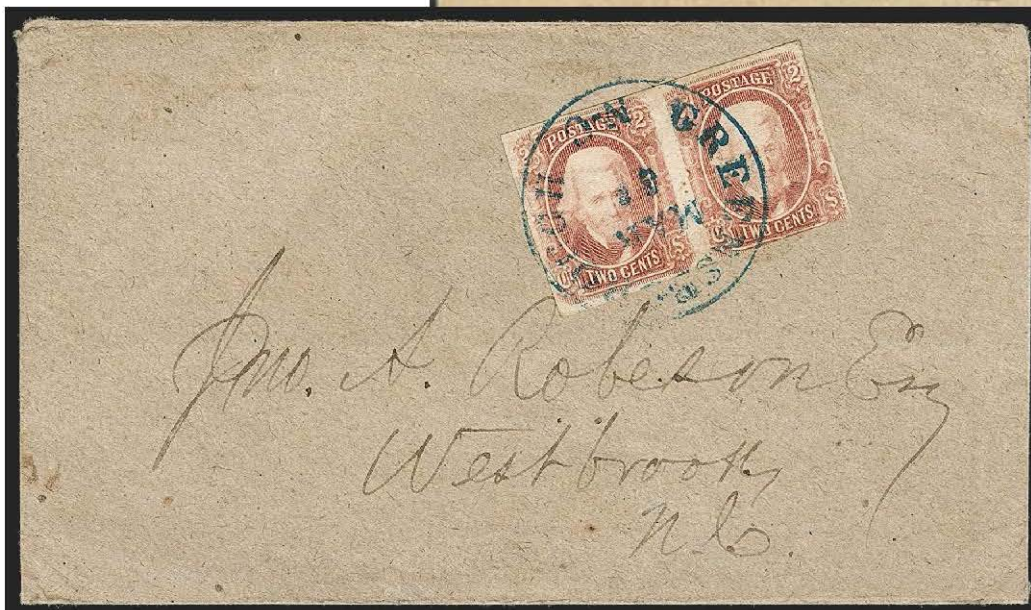 POSTAGE 2
TWO CENTS
POSTAGE 2
TWO CENTS
MAR
Jno. A. Robeson Esq
Westbrooks
N.C.